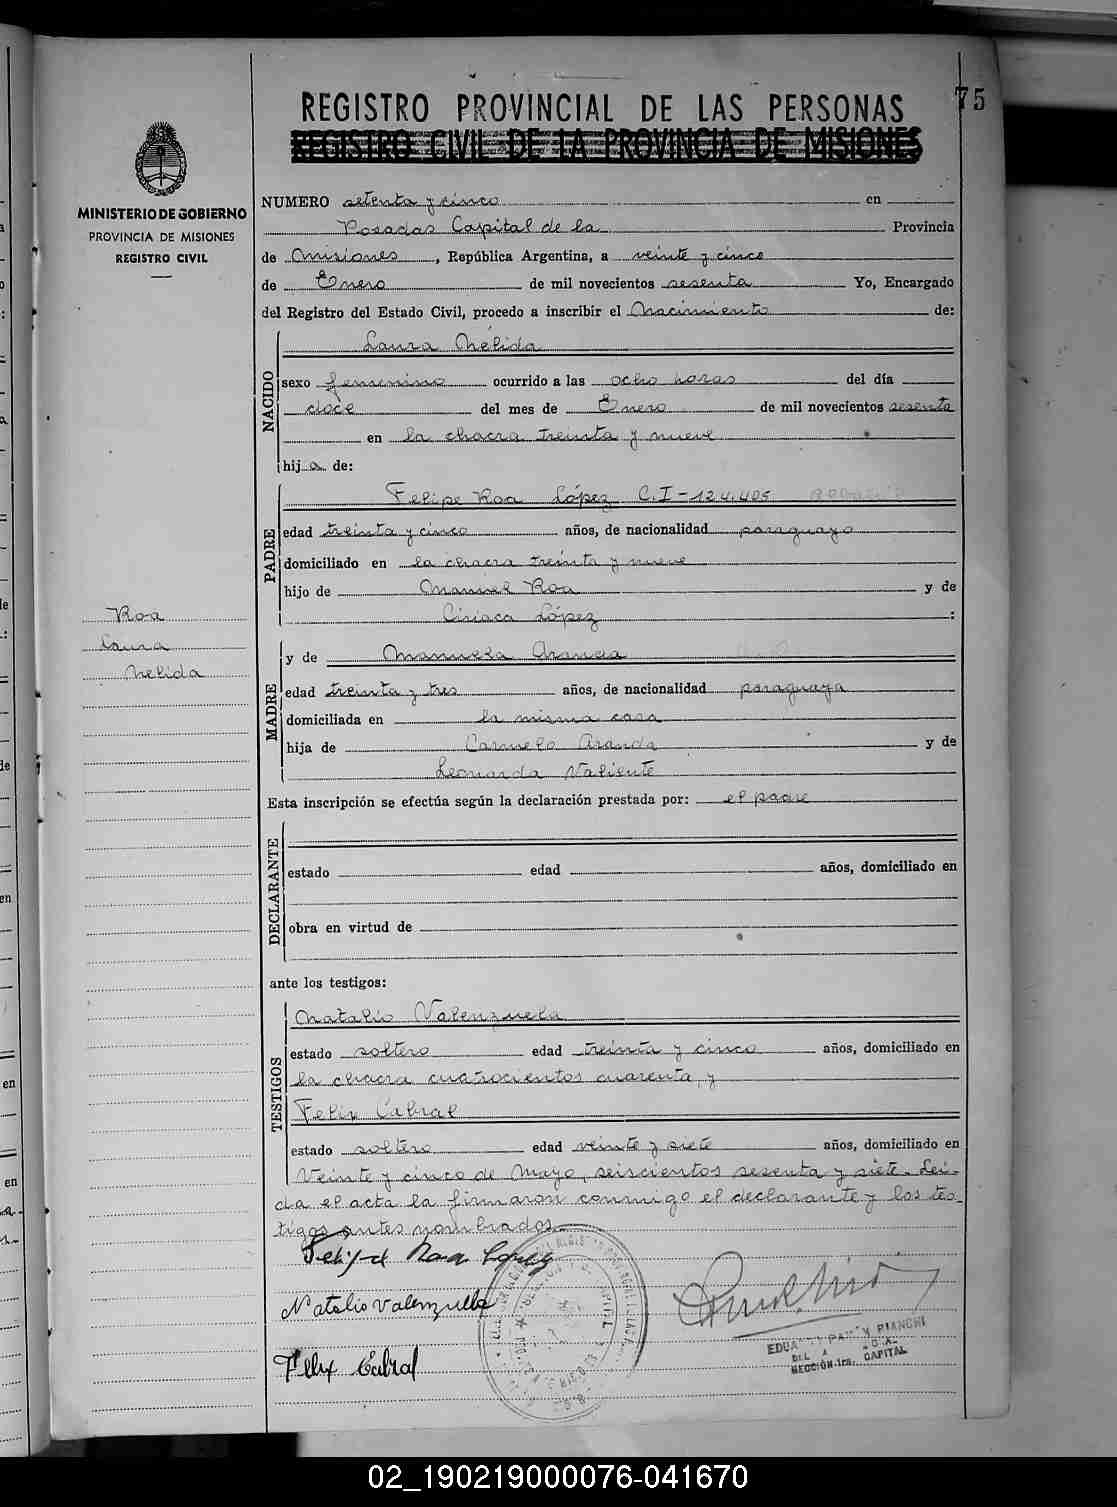 75
REGISTRO PROVINCIAL DE LAS PERSONAS
REGISTRO CIVIL DE LA PROVINCIA DE MISIONES
MINISTERIO DE GOBIERNO
PROVINCIA DE MISIONES
REGISTRO CIVIL
NUMERO setenta y cinco en
Posadas Capital de la Provincia
de Misiones, República Argentina, a veinte y cinco
de Enero de mil novecientos sesenta Yo, Encargado
del Registro del Estado Civil, procedo a inscribir el Nacimiento de:
NACIDO
Laura Nélida
sexo femenino ocurrido a las ocho horas del día
doce del mes de Enero de mil novecientos sesenta
en la chacra treinta y nueve
hija de:
PADRE
Felipe Roa López C.I-124.405
edad treinta y cinco años, de nacionalidad paraguayo
domiciliado en la chacra treinta y nueve
hijo de Manuel Roa y de
Ciriaca López :
Roa
Laura
Nelida
MADRE
y de Manuela Aranda
edad treinta y tres años, de nacionalidad paraguaya
domiciliada en la misma casa
hija de Carmelo Aranda y de
Leonarda Valiente
Esta inscripción se efectúa según la declaración prestada por: el padre
DECLARANTE
estado edad años, domiciliado en
obra en virtud de
ante los testigos:
TESTIGOS
Natalio Valenzuela
estado soltero edad treinta y cinco años, domiciliado en
la chacra cuatrocientos cuarenta, y
Felix Cabral
estado soltero edad veinte y siete años, domiciliado en
Veinte y cinco de Mayo, seiscientos sesenta y siete. Lei-
da el acta la firmaron conmigo el declarante y los tes-
tigos antes nombrados.
Roa López
Natalio Valenzuela
Felix Cabral
BIANCHI
SECCIÓN 1ra. CAPITAL
02_190219000076-041670